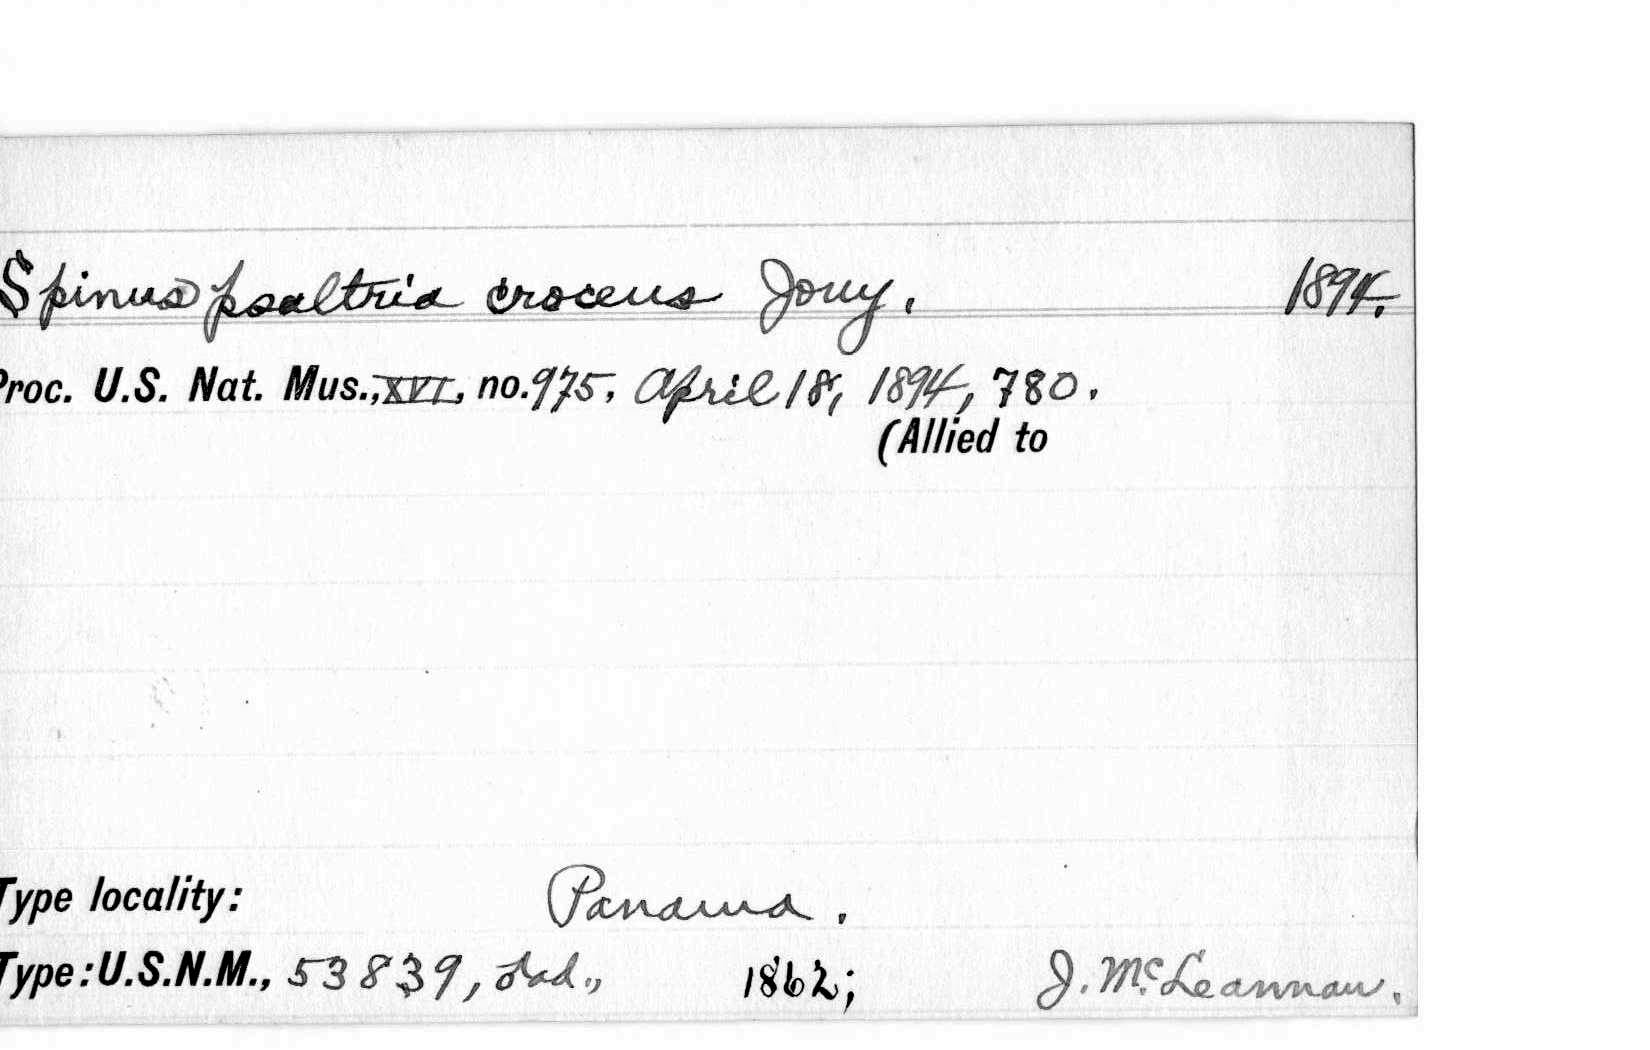 Spinus psaltria croceus Jouy. 1894.
Proc. U.S. Nat. Mus., XVI, no. 975, April 18, 1894, 780.
(Allied to
Type locality: Panama.
Type: U.S.N.M., 53839, ♂ad., 1862; J. McLeannan.